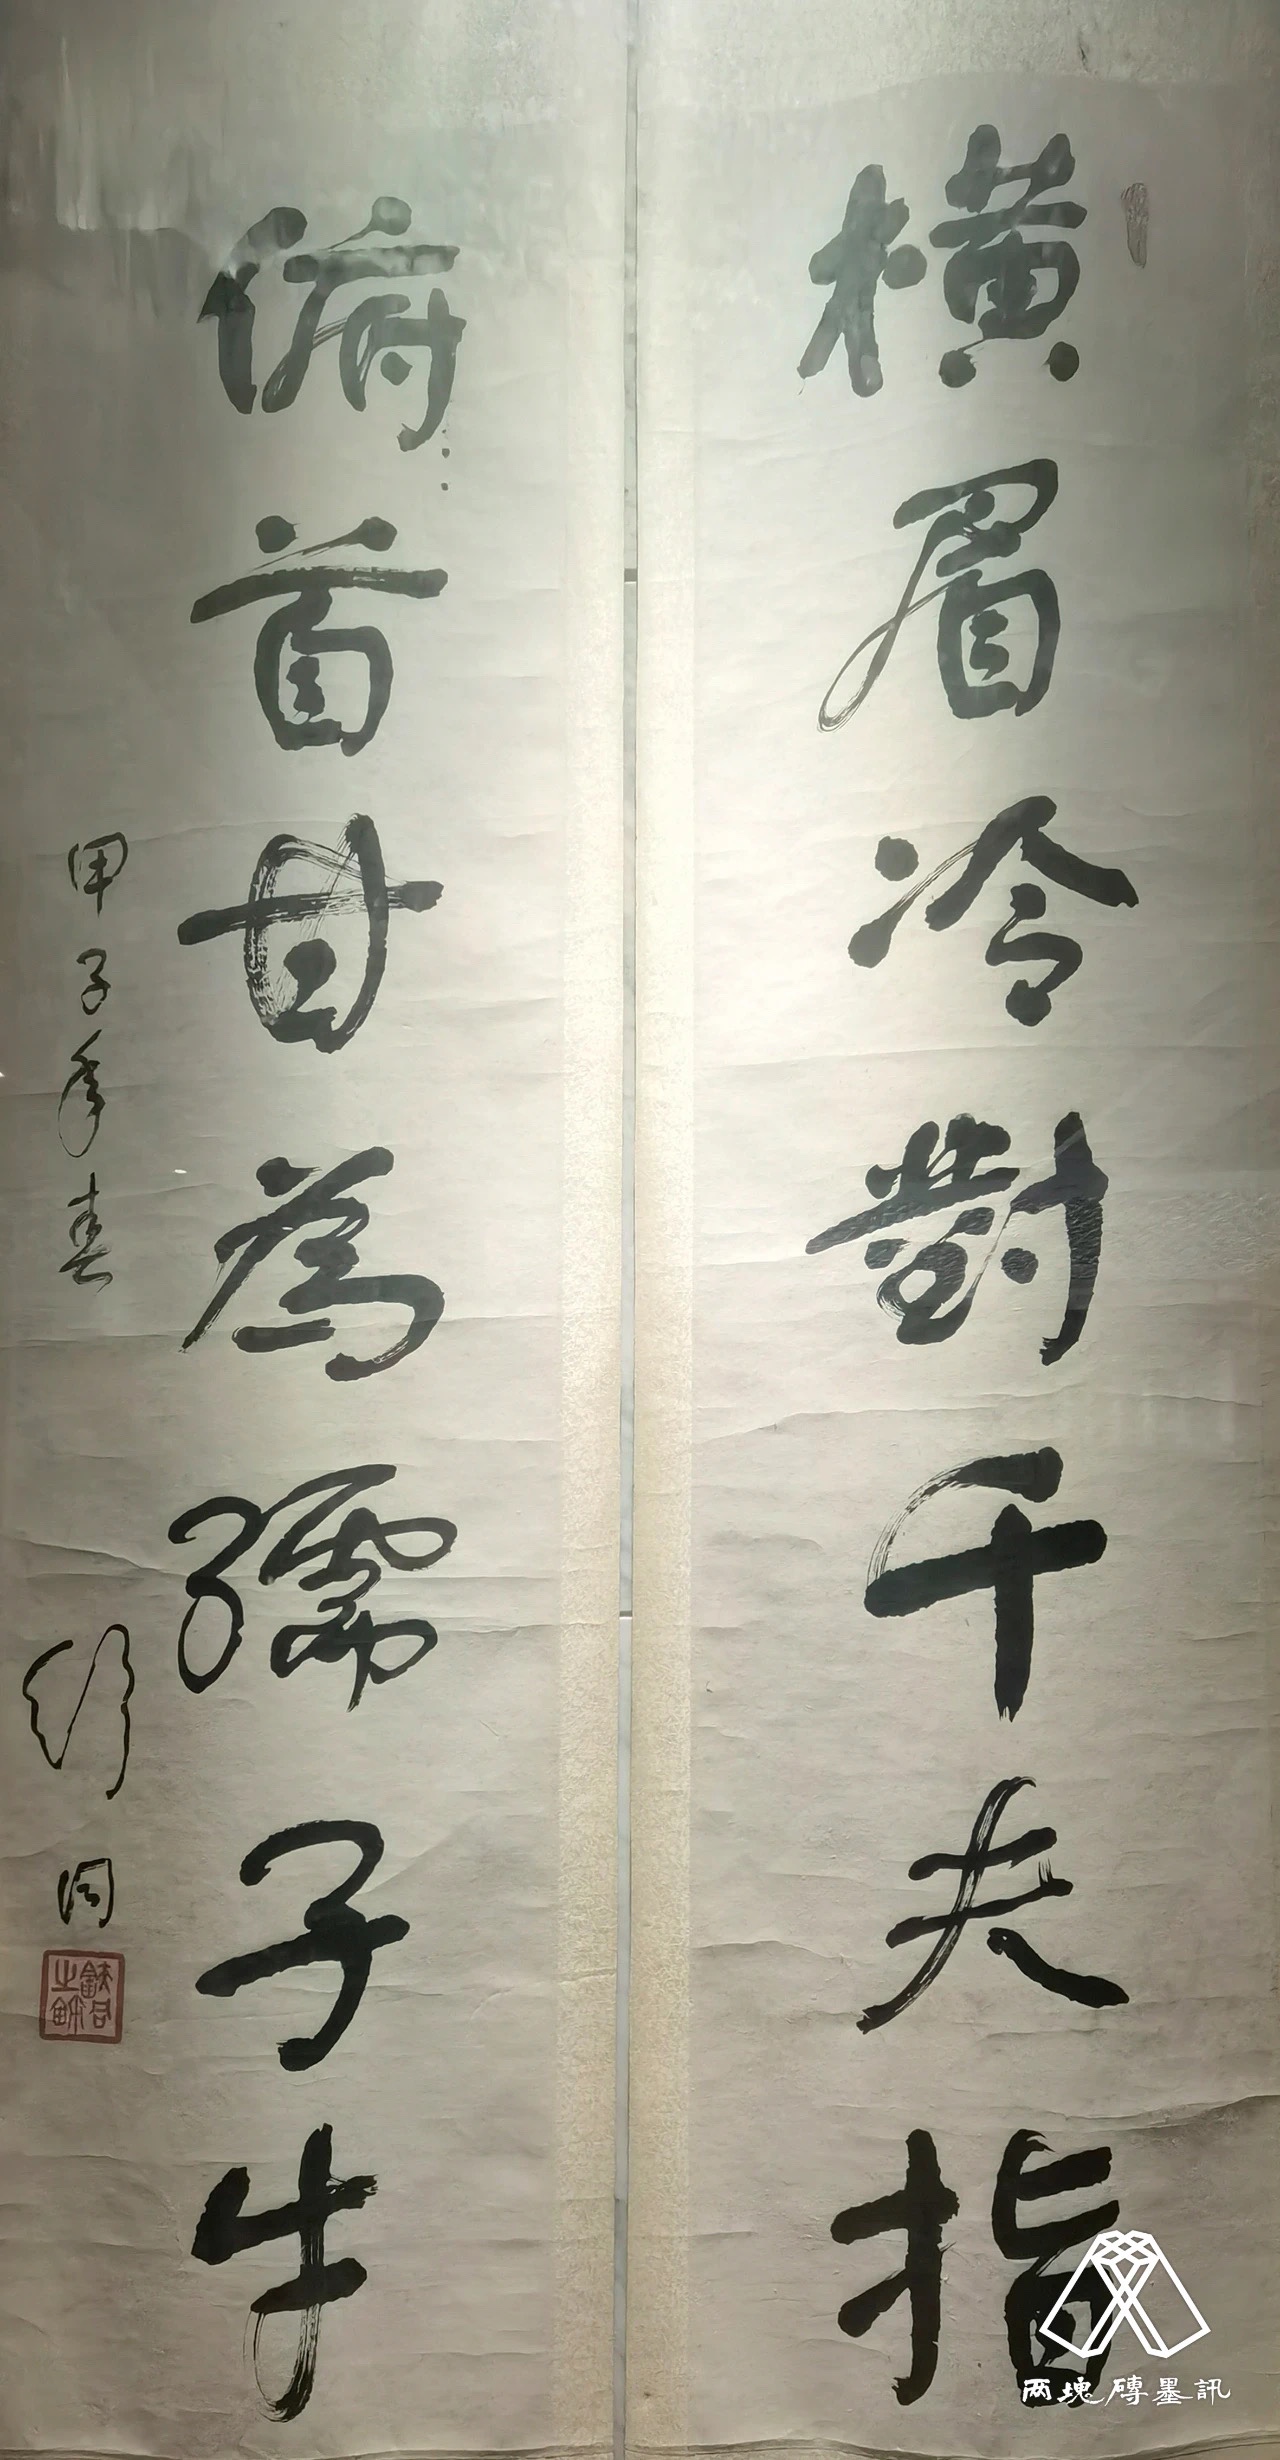 橫眉冷對千夫指
俯首甘為孺子牛
甲子年春
舒同
两塊磚墨訊